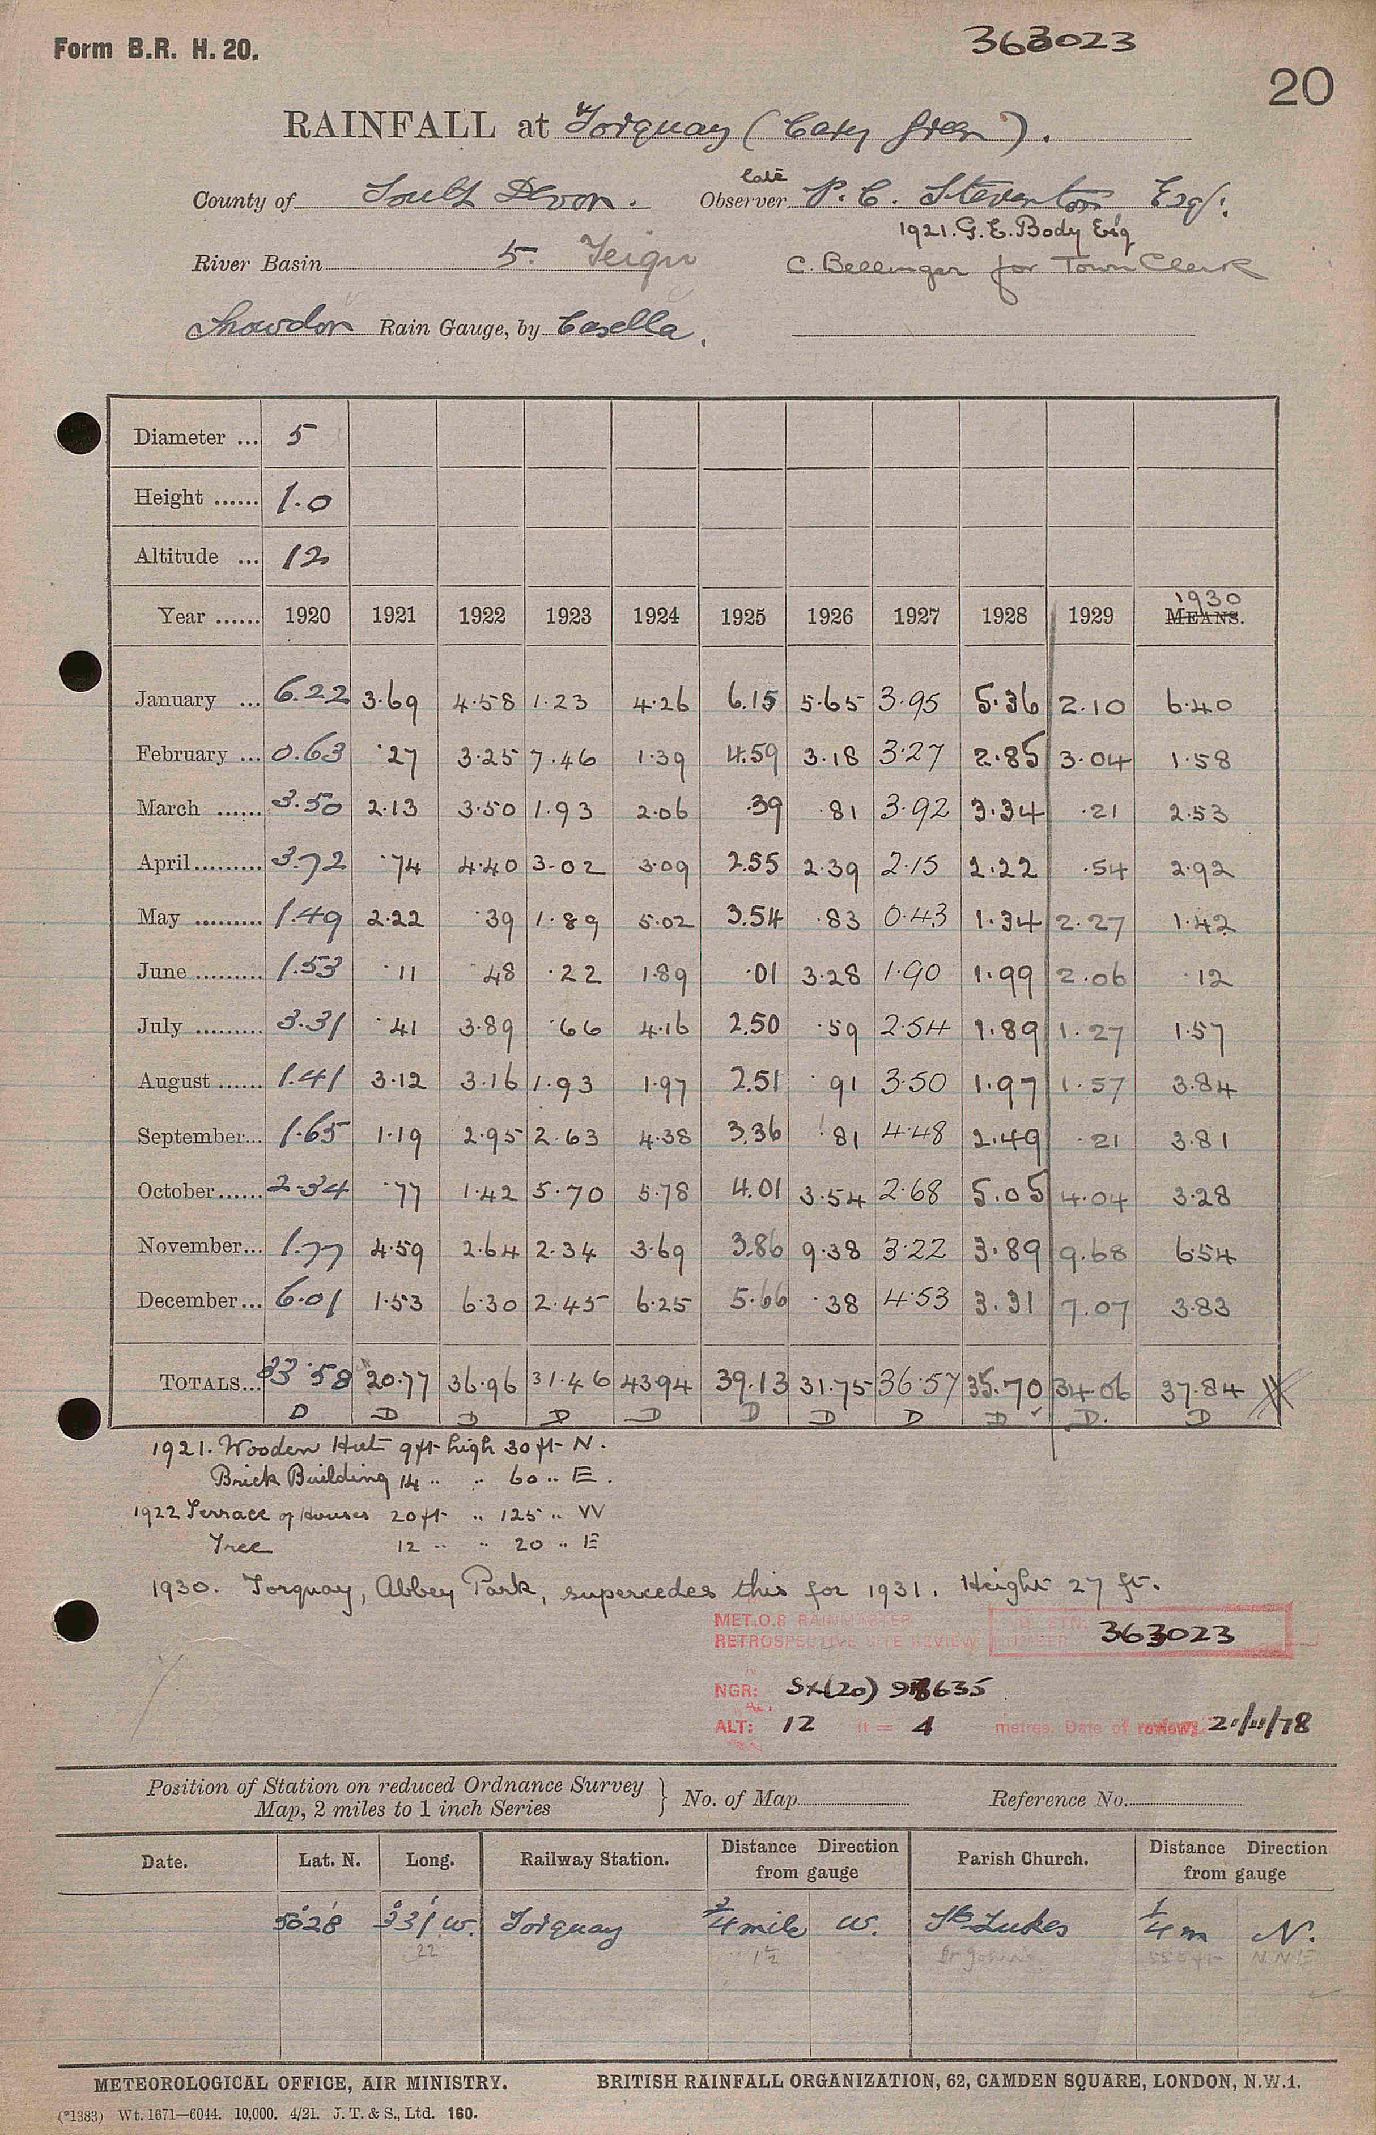 Form B.R. H. 20.
363023
20
RAINFALL at Torquay (Cary Green).
County of South Devon. Observer late P. C. Steventon Esq.
1921. G. E. Body Esq
River Basin 5. Teign C. Bellinger for Town Clerk
Snowdon Rain Gauge, by Casella.
Diameter ... 5
Height ...... 1.0
Altitude ... 12
1930
Year ...... 1920 1921 1922 1923 1924 1925 1926 1927 1928 1929 MEANS.
January ... 6.22 3.69 4.58 1.23 4.26 6.15 5.65 3.95 5.36 2.10 6.40
February ... 0.63 .27 3.25 7.46 1.39 4.59 3.18 3.27 2.85 3.04 1.58
March ...... 3.50 2.13 3.50 1.93 2.06 .39 .81 3.92 3.34 .21 2.53
April......... 3.72 .74 4.40 3.02 3.09 2.55 2.39 2.15 2.22 .54 2.92
May ......... 1.49 2.22 .39 1.89 5.02 3.54 .83 0.43 1.34 2.27 1.42
June ......... 1.53 .11 .48 .22 1.89 .01 3.28 1.90 1.99 2.06 .12
July ......... 3.31 .41 3.89 .66 4.16 2.50 .59 2.54 1.89 1.27 1.57
August ...... 1.41 3.12 3.16 1.93 1.97 2.51 .91 3.50 1.97 1.57 3.84
September... 1.65 1.19 2.95 2.63 4.38 3.36 .81 4.48 2.49 .21 3.81
October...... 2.34 .77 1.42 5.70 5.78 4.01 3.54 2.68 5.05 4.04 3.28
November... 1.77 4.59 2.64 2.34 3.69 3.86 9.38 3.22 3.89 9.68 6.54
December... 6.01 1.53 6.30 2.45 6.25 5.66 .38 4.53 3.31 7.07 3.83
TOTALS... 33.58 20.77 36.96 31.46 43.94 39.13 31.75 36.57 35.70 34.06 37.84
D D D D D D D D D D. D
1921. Wooden Hut 9ft high 30 ft N.
Brick Building 14 .. .. 60 .. E.
1922 Terrace of Houses 20 ft .. 125 .. W
Tree 12 .. .. 20 .. E
1930. Torquay, Abbey Park, supercedes this for 1931. Height 27 ft.
MET.O.8 RAINMASTER
RETROSPECTIVE SITE REVIEW 363023
NGR: SX(20) 635
ALT: 12 ft = 4 metres. Date of review: 21/11/78
Position of Station on reduced Ordnance Survey
Map, 2 miles to 1 inch Series } No. of Map Reference No.
Date. Lat. N. Long. Railway Station. Distance Direction from gauge Parish Church. Distance Direction from gauge
50°28' 3°31' W. Torquay 3/4 mile W. St Lukes 1/4 m N.
22 1½ St John's 550 yds N.N.E
METEOROLOGICAL OFFICE, AIR MINISTRY. BRITISH RAINFALL ORGANIZATION, 62, CAMDEN SQUARE, LONDON, N.W.1.
(*1383) Wt. 1671—6044. 10,000. 4/21. J. T. & S., Ltd. 160.